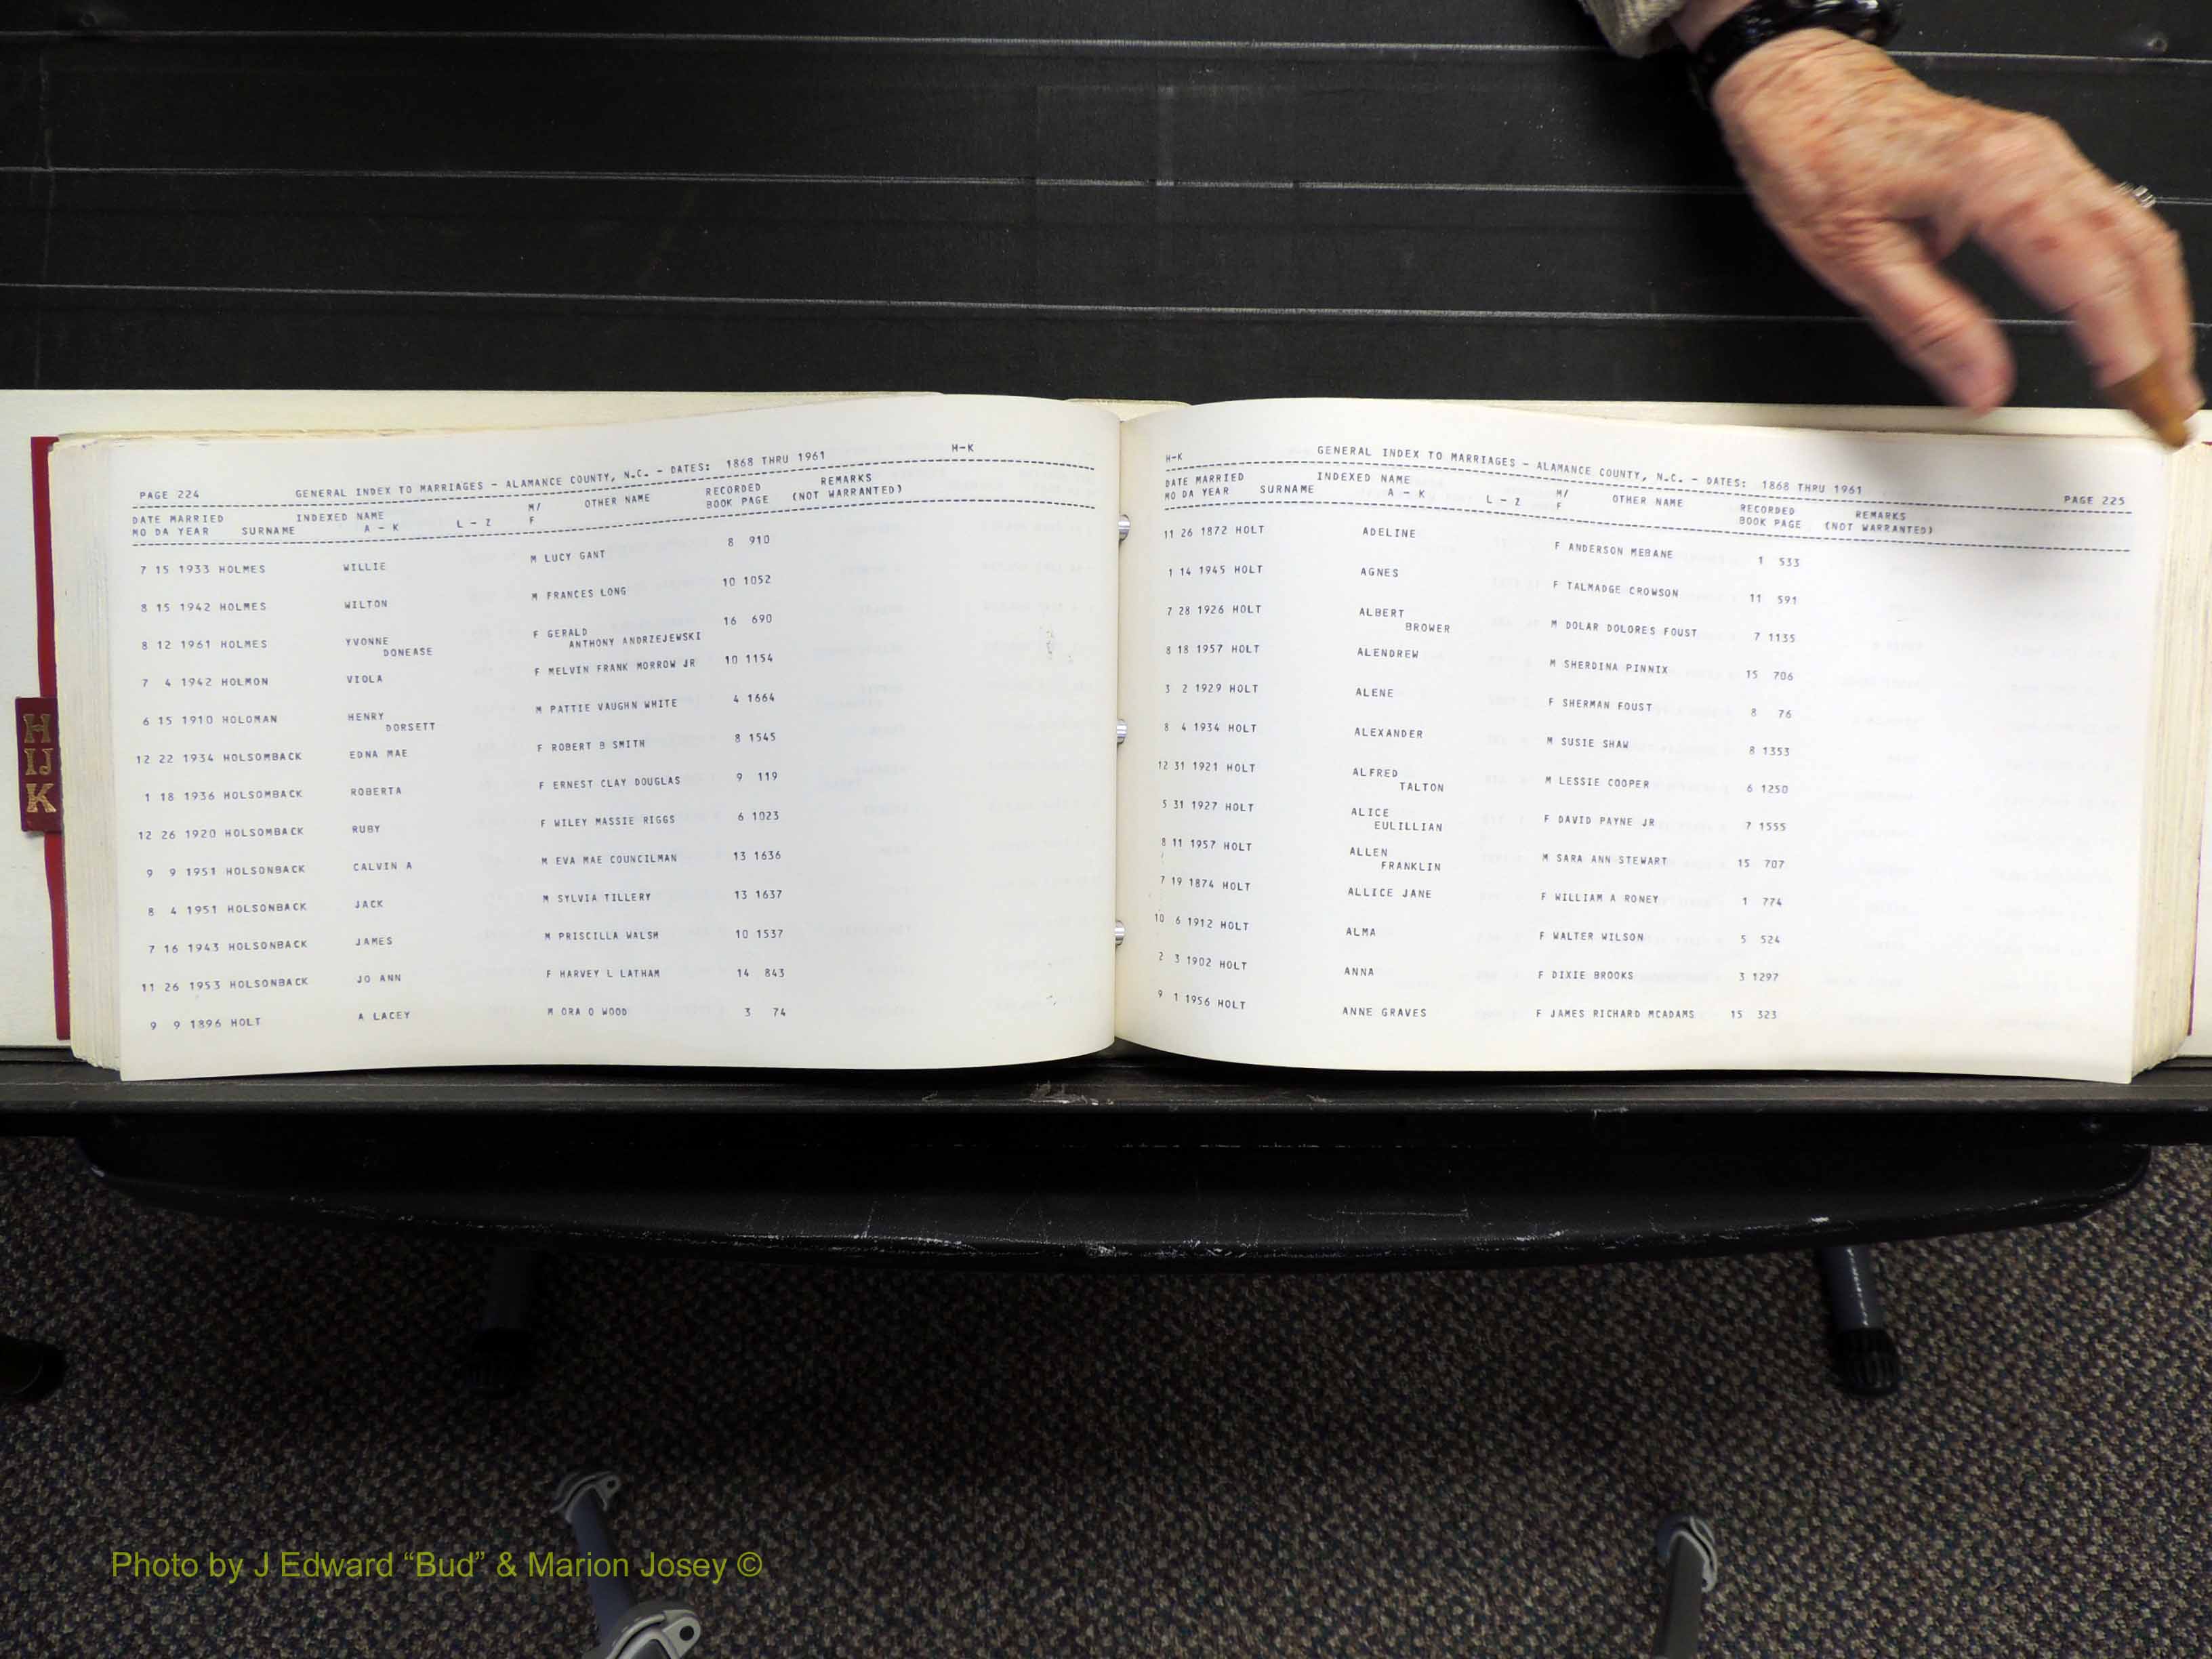 H
IJ
K
PAGE 224 GENERAL INDEX TO MARRIAGES - ALAMANCE COUNTY, N.C. - DATES: 1868 THRU 1961 H-K
DATE MARRIED INDEXED NAME M/ OTHER NAME RECORDED REMARKS
MO DA YEAR SURNAME A - K L - Z F BOOK PAGE (NOT WARRANTED)
7 15 1933 HOLMES WILLIE M LUCY GANT 8 910
8 15 1942 HOLMES WILTON M FRANCES LONG 10 1052
8 12 1961 HOLMES YVONNE F GERALD 16 690
DONEASE ANTHONY ANDRZEJEWSKI
7 4 1942 HOLMON VIOLA F MELVIN FRANK MORROW JR 10 1154
6 15 1910 HOLOMAN HENRY M PATTIE VAUGHN WHITE 4 1664
DORSETT
12 22 1934 HOLSOMBACK EDNA MAE F ROBERT B SMITH 8 1545
1 18 1936 HOLSOMBACK ROBERTA F ERNEST CLAY DOUGLAS 9 119
12 26 1920 HOLSOMBACK RUBY F WILEY MASSIE RIGGS 6 1023
9 9 1951 HOLSONBACK CALVIN A M EVA MAE COUNCILMAN 13 1636
8 4 1951 HOLSONBACK JACK M SYLVIA TILLERY 13 1637
7 16 1943 HOLSONBACK JAMES M PRISCILLA WALSH 10 1537
11 26 1953 HOLSONBACK JO ANN F HARVEY L LATHAM 14 843
9 9 1896 HOLT A LACEY M ORA O WOOD 3 74
H-K GENERAL INDEX TO MARRIAGES - ALAMANCE COUNTY, N.C. - DATES: 1868 THRU 1961 PAGE 225
DATE MARRIED INDEXED NAME M/ OTHER NAME RECORDED REMARKS
MO DA YEAR SURNAME A - K L - Z F BOOK PAGE (NOT WARRANTED)
11 26 1872 HOLT ADELINE F ANDERSON MEBANE 1 533
1 14 1945 HOLT AGNES F TALMADGE CROWSON 11 591
7 28 1926 HOLT ALBERT M DOLAR DOLORES FOUST 7 1135
BROWER
8 18 1957 HOLT ALENDREW M SHERDINA PINNIX 15 706
3 2 1929 HOLT ALENE F SHERMAN FOUST 8 76
8 4 1934 HOLT ALEXANDER M SUSIE SHAW 8 1353
12 31 1921 HOLT ALFRED M LESSIE COOPER 6 1250
TALTON
5 31 1927 HOLT ALICE F DAVID PAYNE JR 7 1555
EULILLIAN
8 11 1957 HOLT ALLEN M SARA ANN STEWART 15 707
FRANKLIN
7 19 1874 HOLT ALLICE JANE F WILLIAM A RONEY 1 774
10 6 1912 HOLT ALMA F WALTER WILSON 5 524
2 3 1902 HOLT ANNA F DIXIE BROOKS 3 1297
9 1 1956 HOLT ANNE GRAVES F JAMES RICHARD MCADAMS 15 323
Photo by J Edward “Bud” & Marion Josey ©